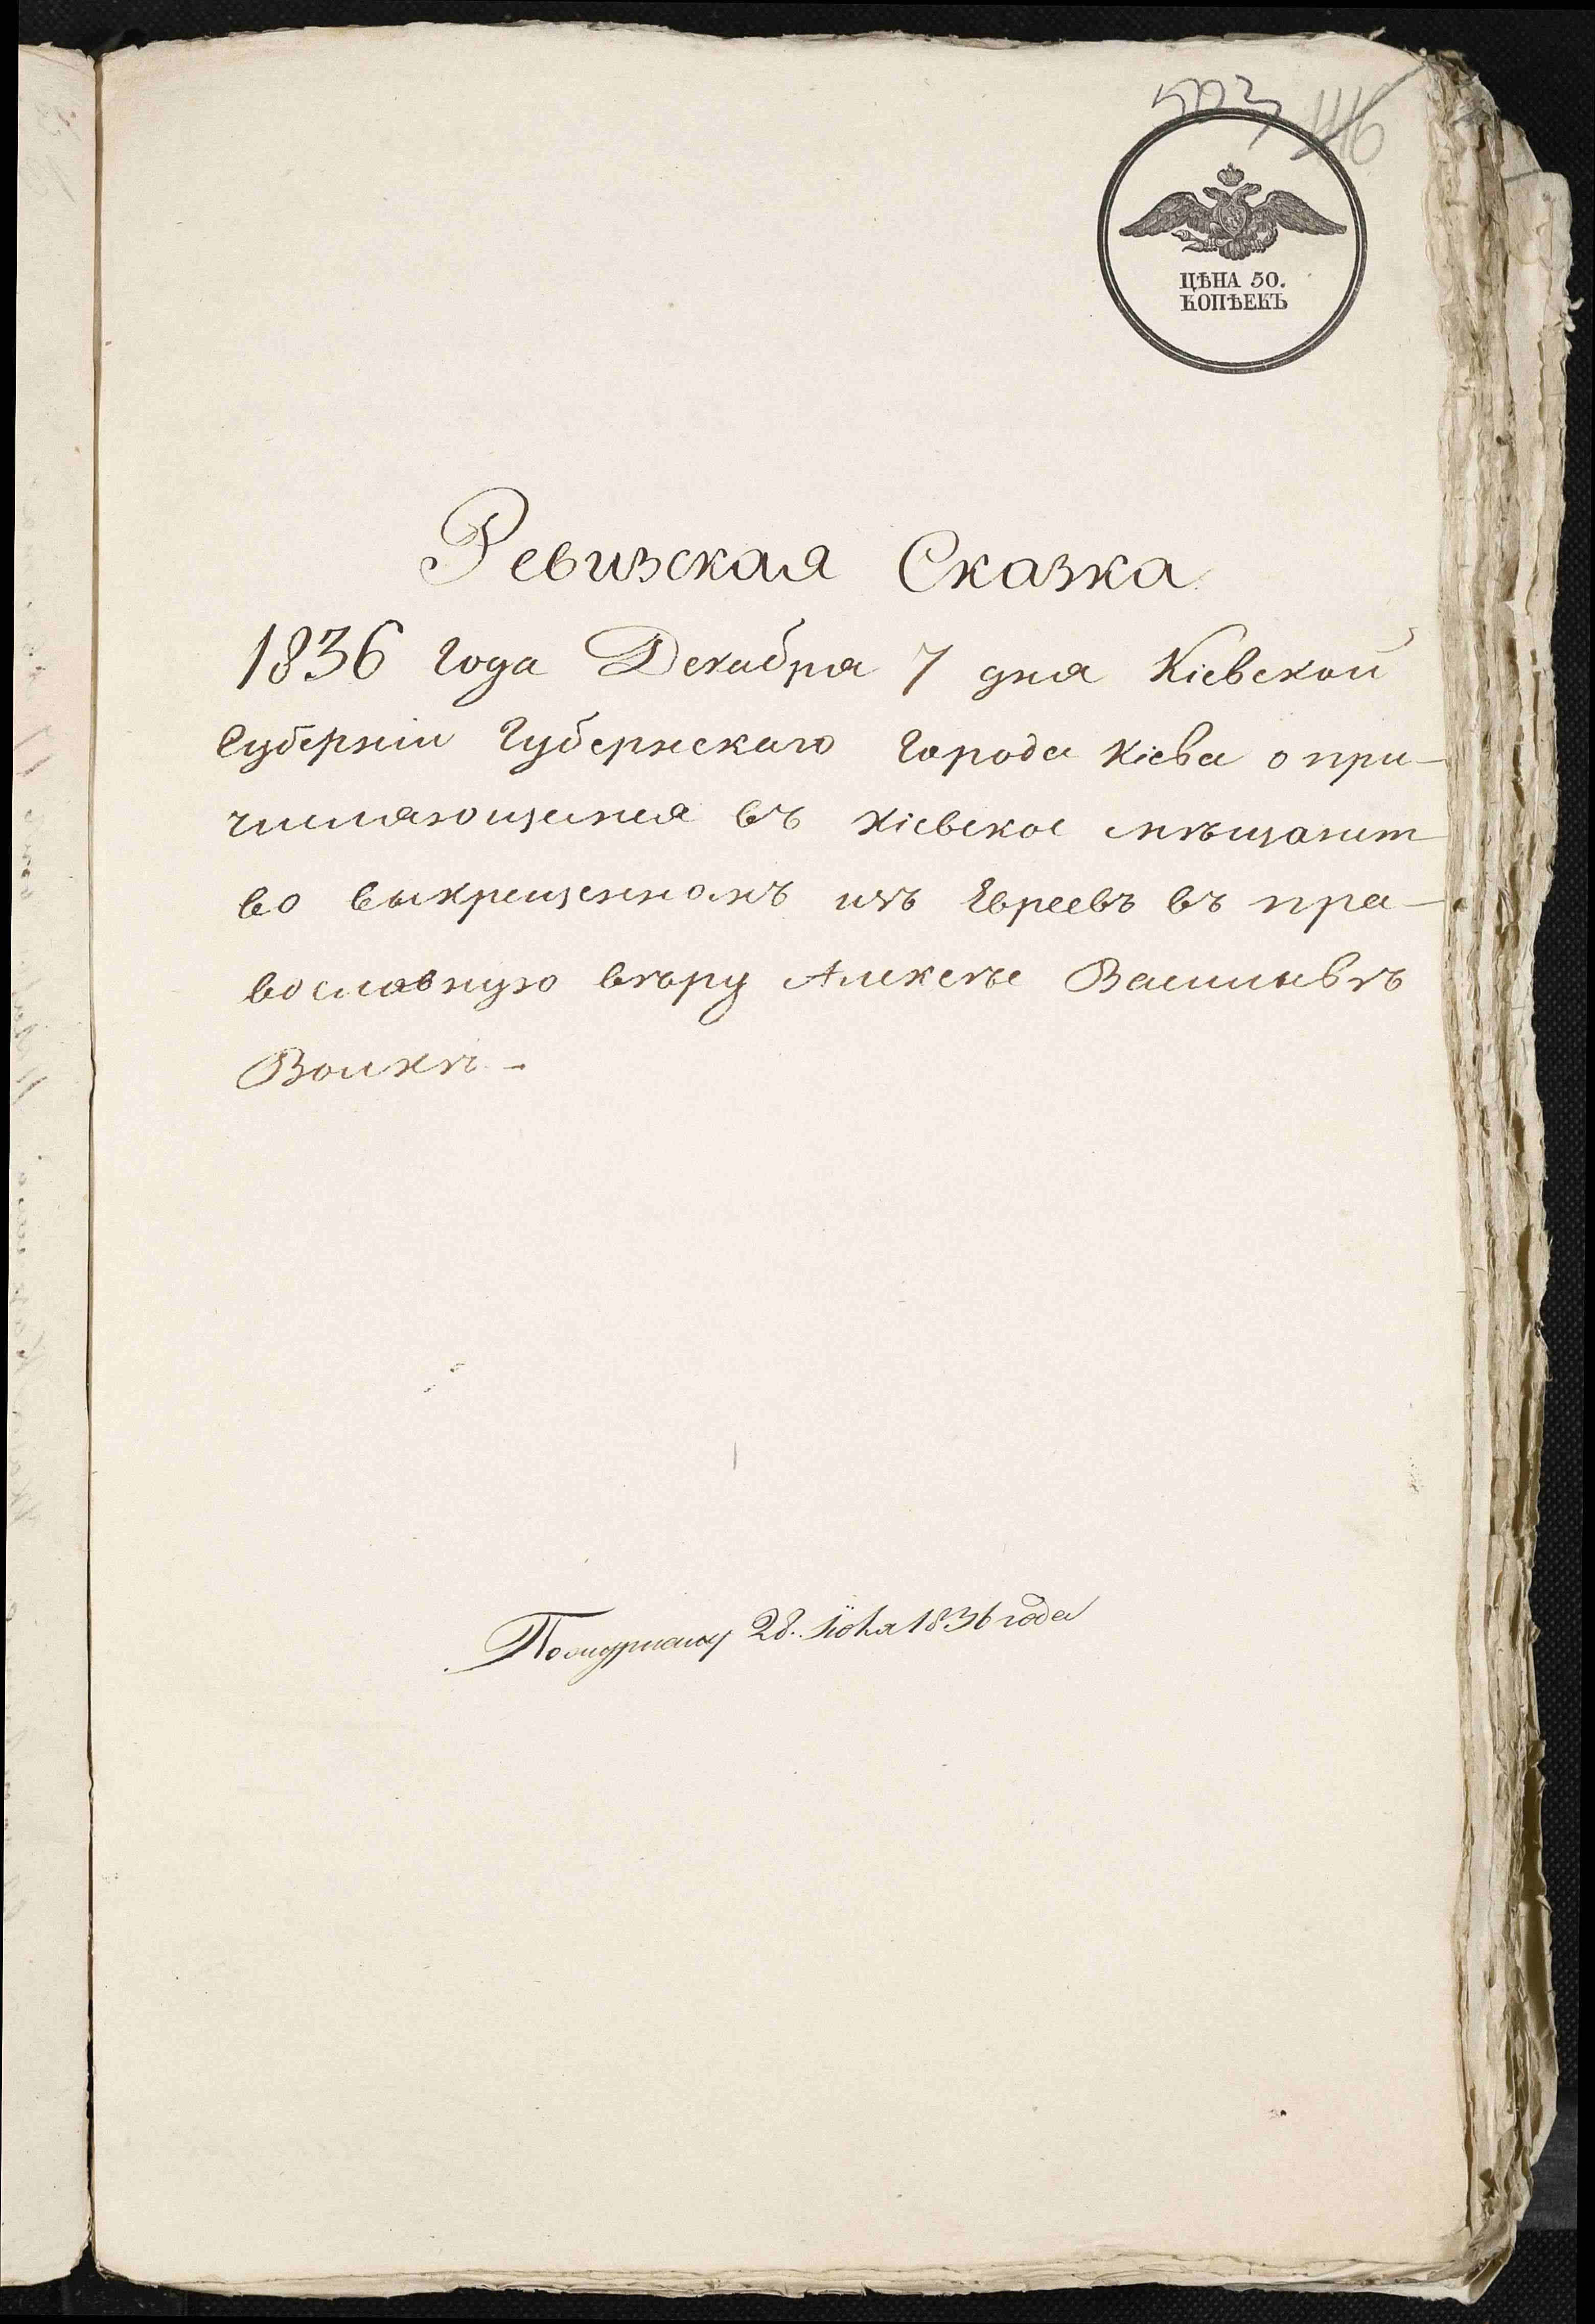 503 116
ЦѢНА 50.
КОПѢЕКЪ
Ревизская Сказка
1836 Года Декабря 7 дня Кіевской
Губерніи Губернскаго Города Кіева о при-
числяющемся въ Кіевское мѣщанист-
во выкрещенномъ изъ Евреевъ въ пра-
вославную вѣру Алексѣе Васильевѣ
Волкѣ -
28. 1836 года